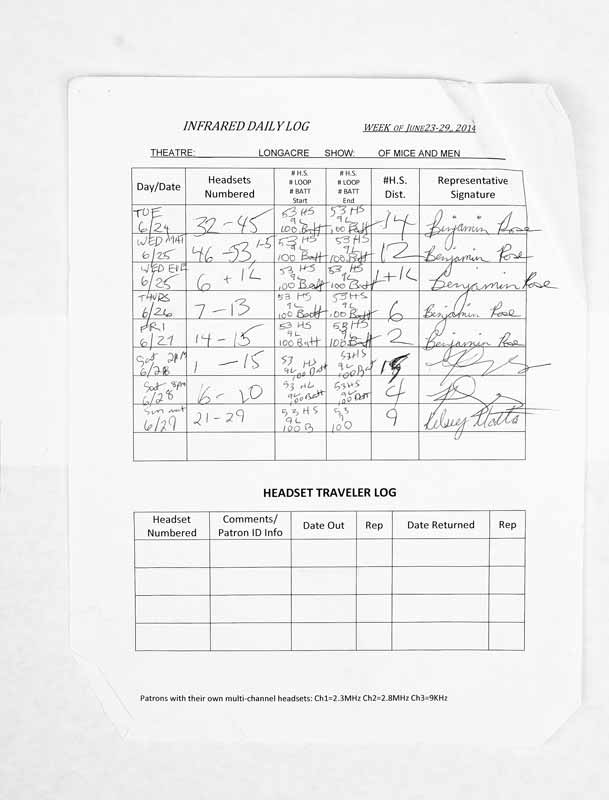 INFRARED DAILY LOG WEEK OF JUNE 23-29, 2014
THEATRE: LONGACRE SHOW: OF MICE AND MEN
Day/Date Headsets Numbered # H.S. # LOOP # BATT Start # H.S. # LOOP # BATT End #H.S. Dist. Representative Signature
TUE 6/24 32-45 53 HS 9L 100 Batt 53 HS 9L 100 Batt 14 Benjamin Rose
WED MAT 6/25 46-53, 1-5 53 HS 9L 100 Batt 53 HS 9L 100 Batt 12 Benjamin Rose
WED EVE 6/25 6 + 1L 53 HS 9L 100 Batt 53 HS 9L 100 Batt 1+1L Benjamin Rose
THURS 6/26 7-13 53 HS 9L 100 Batt 53 HS 9L 100 Batt 6 Benjamin Rose
FRI 6/27 14-15 53 HS 9L 100 Batt 53 HS 9L 100 Batt 2 Benjamin Rose
Sat 2PM 6/28 1-15 53 HS 9L 100 Batt 53 HS 9L 100 Bat 15
Sat 8pm 6/28 16-20 53 HL 9L 100 Batt 53 HS 9L 100 Batt 4
Sun mat 6/29 21-29 53 HS 9L 100 B 53 9L 100 9 Kelsey
HEADSET TRAVELER LOG
Headset Numbered Comments/ Patron ID Info Date Out Rep Date Returned Rep
Patrons with their own multi-channel headsets: Ch1=2.3MHz Ch2=2.8MHz Ch3=9KHz